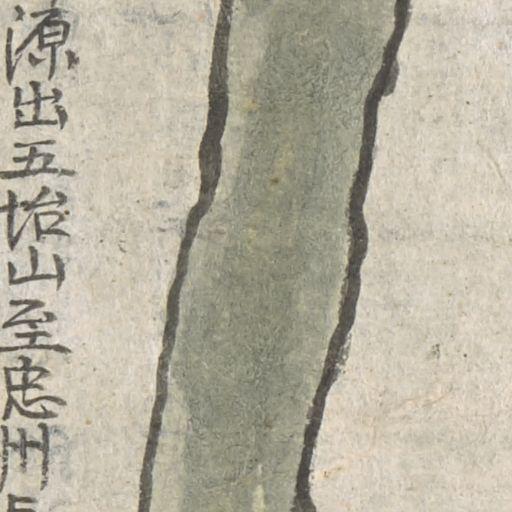 源出五㙜山至忠州